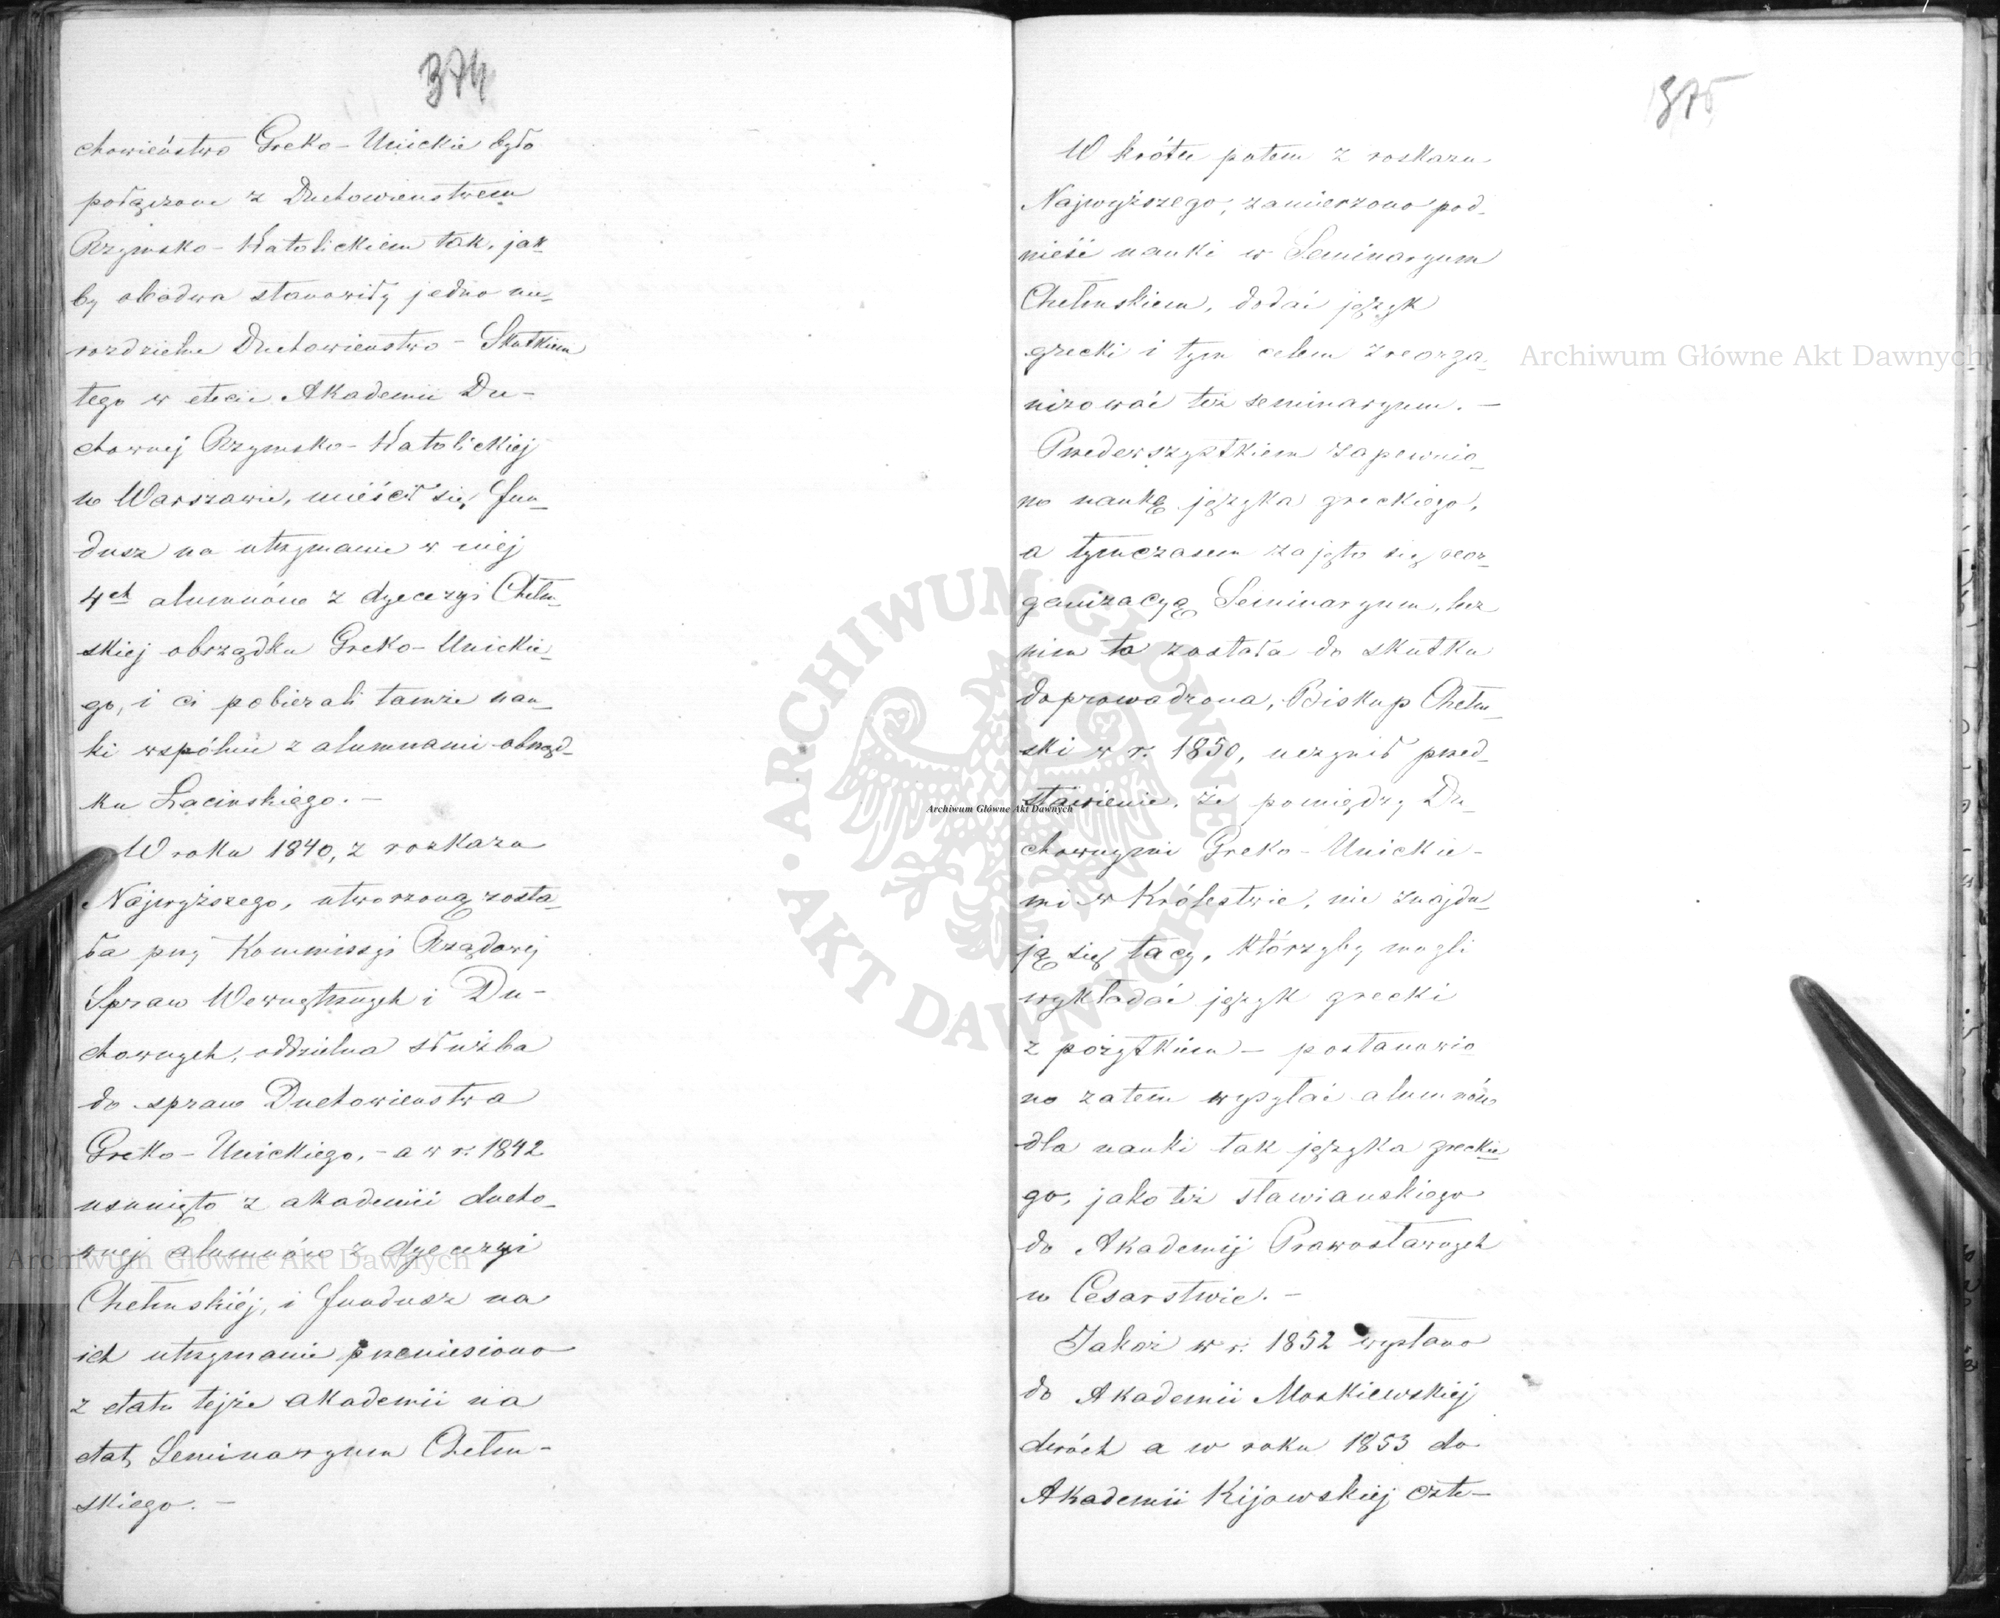 374
chowieństwo Greko-Unickie było
połączone z Duchowieństwem
Rzymsko-Katolickiem tak, jak
by obadwa stanowiły jedno nie-
rozdzielne Duchowieństwo - Skutkiem
tego w etacie Akademii Du-
chownej Rzymsko-Katolickiej
w Warszawie, mieścił się, fun-
dusz na utrzymanie w niej
4ch alumnów z dyecezyi Chełm-
skiej obrządku Greko-Unickie-
go, i ci pobierali tamże nau-
ki wspólnie z alumnami obrząd-
ku Łacińskiego. -
W roku 1840, z rozkazu
Najwyższego, utworzoną zosta-
ła przy Kommissyi Rządowej
Spraw Wewnętrznych i Du-
chownych, oddzielna służba
do spraw Duchowieństwa
Greko-Unickiego, - a w r. 1842
usunięto z akademii ducho-
wnej alumnów z dyecezyi
Chełmskiéj, i fundusz na
ich utrzymanie przeniesiono
z etatu tejże akademii na
etat Seminaryum Chełm-
skiego. -
375
W krótce potem z roskazu
Najwyższego, zamierzono pod-
nieść nauki w Seminaryum
Chełmskiem, dodać język
grecki i tym celem zreorga-
nizować też seminaryum. -
Przedewszystkiem zapewnio-
no naukę języka greckiego,
a tymczasem zajęto się reor-
ganizacyą Seminaryum, lecz
nim ta została do skutku
doprowadzona, Biskup Chełm-
ski w r. 1850, uczynił przed-
stawienie, że pomiędzy Du-
chownymi Greko-Unickie-
mi w Królestwie, nie znajdu-
ją się tacy, którzyby mogli
wykładać język grecki
z pożytkiem - postanowio
no zatem wysyłać alumnów
dla nauki tak języka greckie
go, jako też sławiańskiego
do Akademij Prawosławnych
w Cesarstwie. -
Jakoż w r. 1852 wysłano
do Akademii Moskiewskiej
dwóch a w roku 1853 do
Akademii Kijowskiej czte-
Archiwum Główne Akt Dawnych
Archiwum Główne Akt Dawnych
Archiwum Główne Akt Dawnych
ARCHIWUM GŁÓWNE · AKT DAWNYCH ·